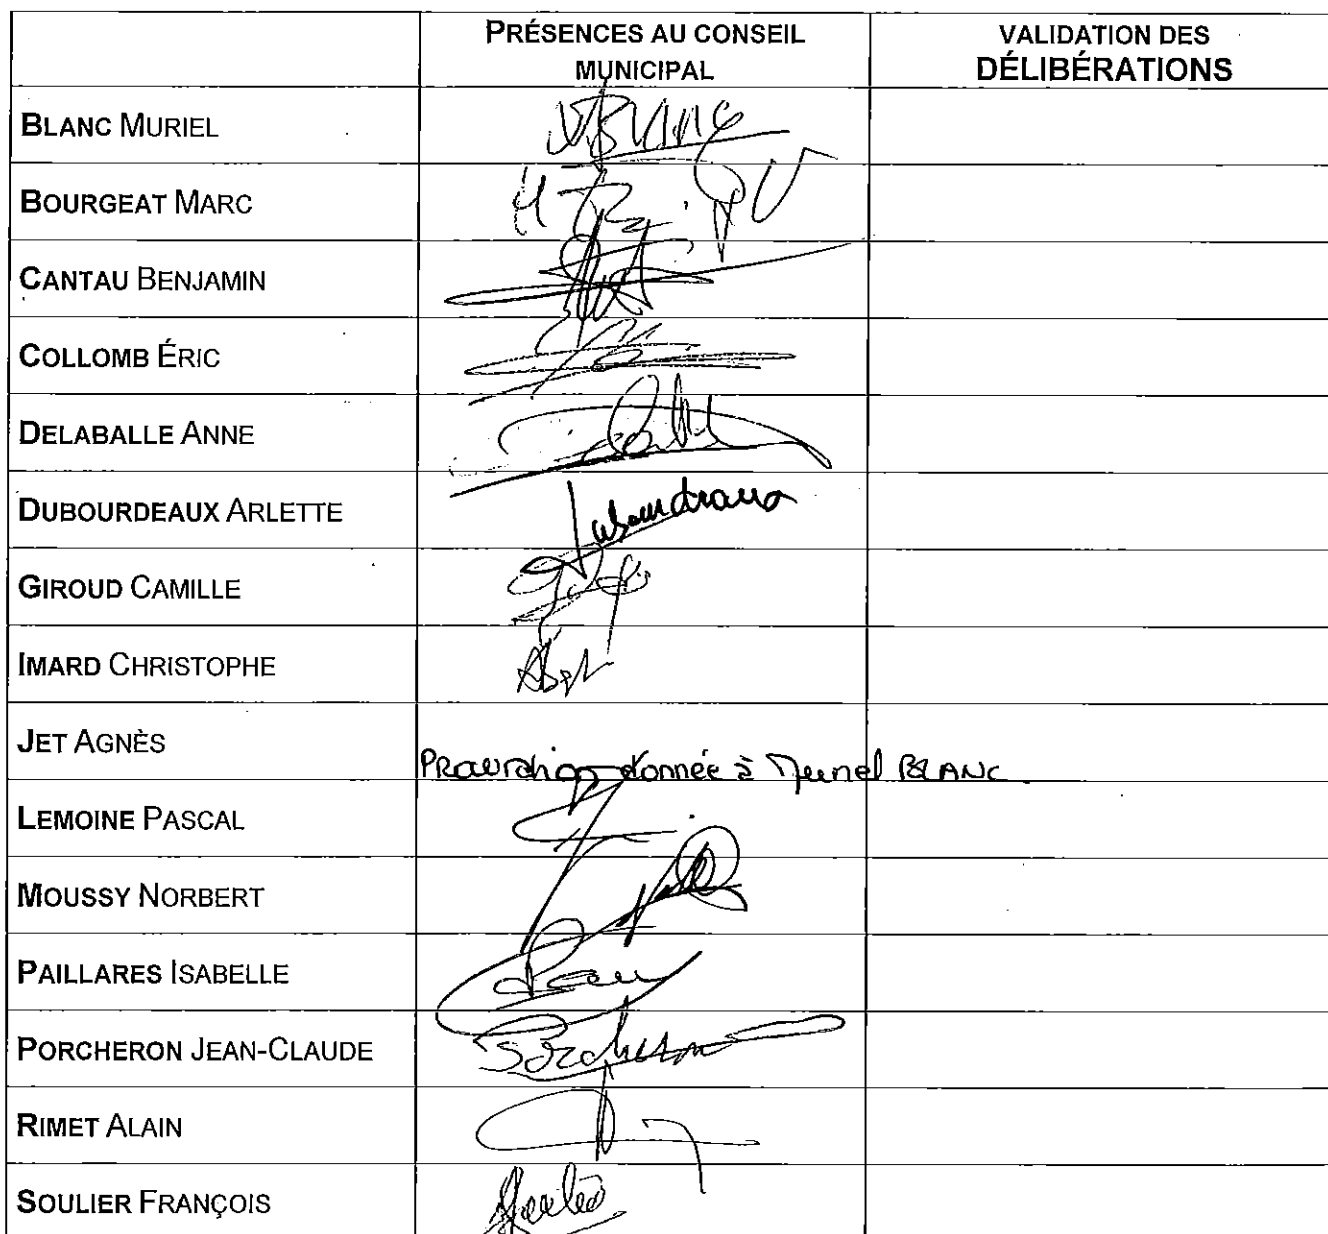 PRÉSENCES AU CONSEIL
MUNICIPAL
VALIDATION DES
DÉLIBÉRATIONS
BLANC MURIEL
BOURGEAT MARC
CANTAU BENJAMIN
COLLOMB ÉRIC
DELABALLE ANNE
DUBOURDEAUX ARLETTE
GIROUD CAMILLE
IMARD CHRISTOPHE
JET AGNÈS
Procuration donnée à Muriel BLANC
LEMOINE PASCAL
MOUSSY NORBERT
PAILLARES ISABELLE
PORCHERON JEAN-CLAUDE
Porcheron
RIMET ALAIN
SOULIER FRANÇOIS